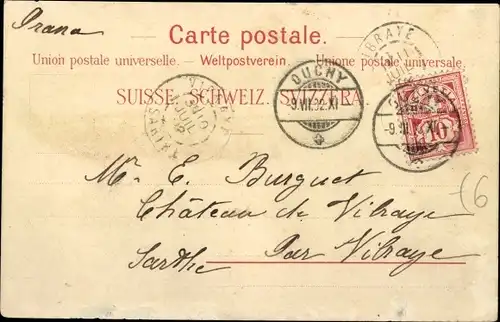 Prana
Carte postale.
Union postale universelle. — Weltpostverein. — Unione postale universale
SUISSE. SCHWEIZ. SVIZZERA.
OUCHY
-9.VII.
10
M. E. Burguet
Château de Vibraye
Par Vibraye
Sarthe
6